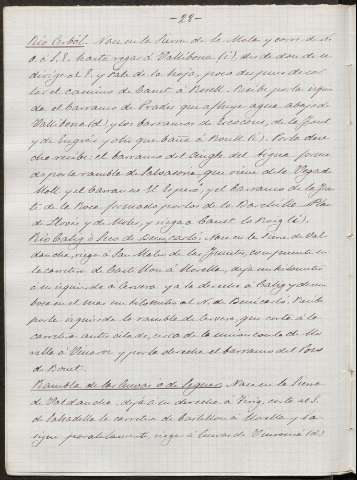 -22-
Rio Cerból. Nace en la Sierra de la Mola y corre de N.
O. á S. E. hasta regar á Vallibona (i) desde donde se
dirige al E. y sale de la hoja, poco despues de cor-
tar el camino de Canet á Rosell. Recibe por la izquier-
da el barranco de Prades que afluye agua abajo de
Vallibona (d) y los barrancos de la Font
y de y otro que baña á Rosell (i). Por la dere-
cha recibe: el barranco del Single del Aigua, forma-
do por la rambla de Salvasoria, que viene de la Vega de
Moll, y el barranco El Espero, y el barranco de la fon-
t de la Roca, formado por los de la Barchilla, Plá
de Llovis y de Moles, y riega á Canet lo Roig (i).
Rio Calig ó Seco de Benicarló. Nace en la Sierra de Val-
dancha, riega á San Mateo de las Fuentes, cruza
la carretera de Castellon á Morella, deja un kilometro
á su izquierda á Cervera y á la derecha á Calig y desem-
boca en el mar un kilometro al N. de Benicarló. Recibe
por la izquierda la rambla de Cervera, que corta á la
carretera antes citada, cerca de la union con la de Mo-
rella á Vinaroz y por la derecha el barranco del Pou
de Bonet.
Rambla de las Cuevas ó de Segarra. Nace en la Sierra
de Valdancha, deja á su derecha á Tirig, corta al S.
de Salsadella la carretera de Castellon á Morella y la
sigue paralelamente, riega á Cuevas de Vinromá (d)